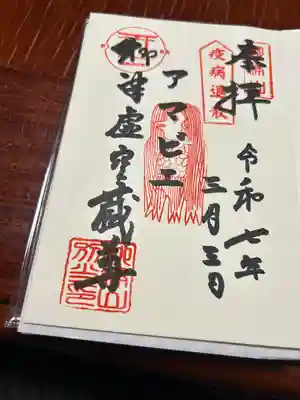 奉拝
令和七年
三月三日
疫病退散
アマビエ
柳津虚空蔵尊